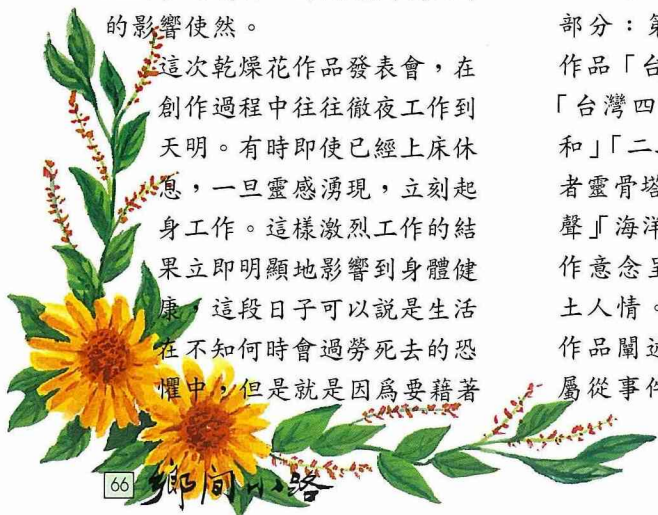 的影響使然。
這次乾燥花作品發表會，在
創作過程中往往徹夜工作到
天明。有時即使已經上床休
息，一旦靈感湧現，立刻起
身工作。這樣激烈工作的結
果立即明顯地影響到身體健
康，這段日子可以說是生活
在不知何時會過勞死去的恐
懼中，但是就是因為要藉著
部分：第
作品「台
「台灣四
和」「二
者靈骨塔
聲』『海洋
作意念呈
土人情。
作品闡述
屬從事件
66 鄉間小路